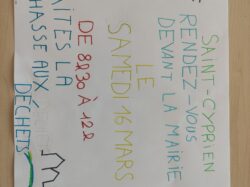 SAINT-CYPRIEN
RENDEZ-VOUS
DEVANT LA MAIRIE
LE
SAMEDI 16 MARS
DE 8H30 À 12H
AITES LA
HASSE AUX
DÉCHETS